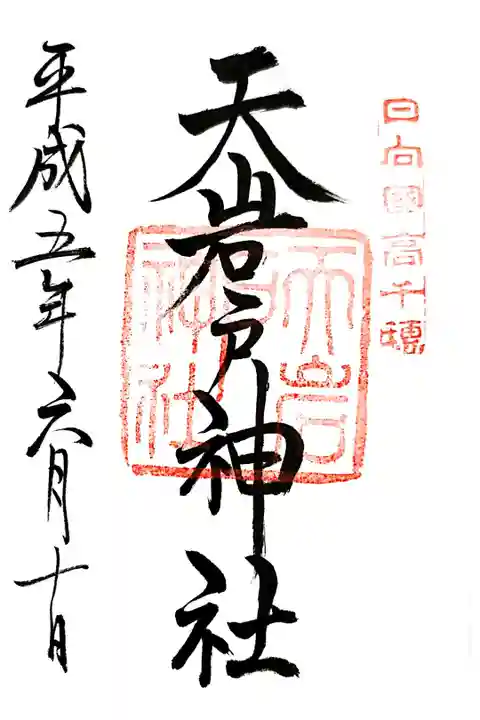 日向國高千穗
天岩戸神社
天岩戸神社
平成五年六月十日